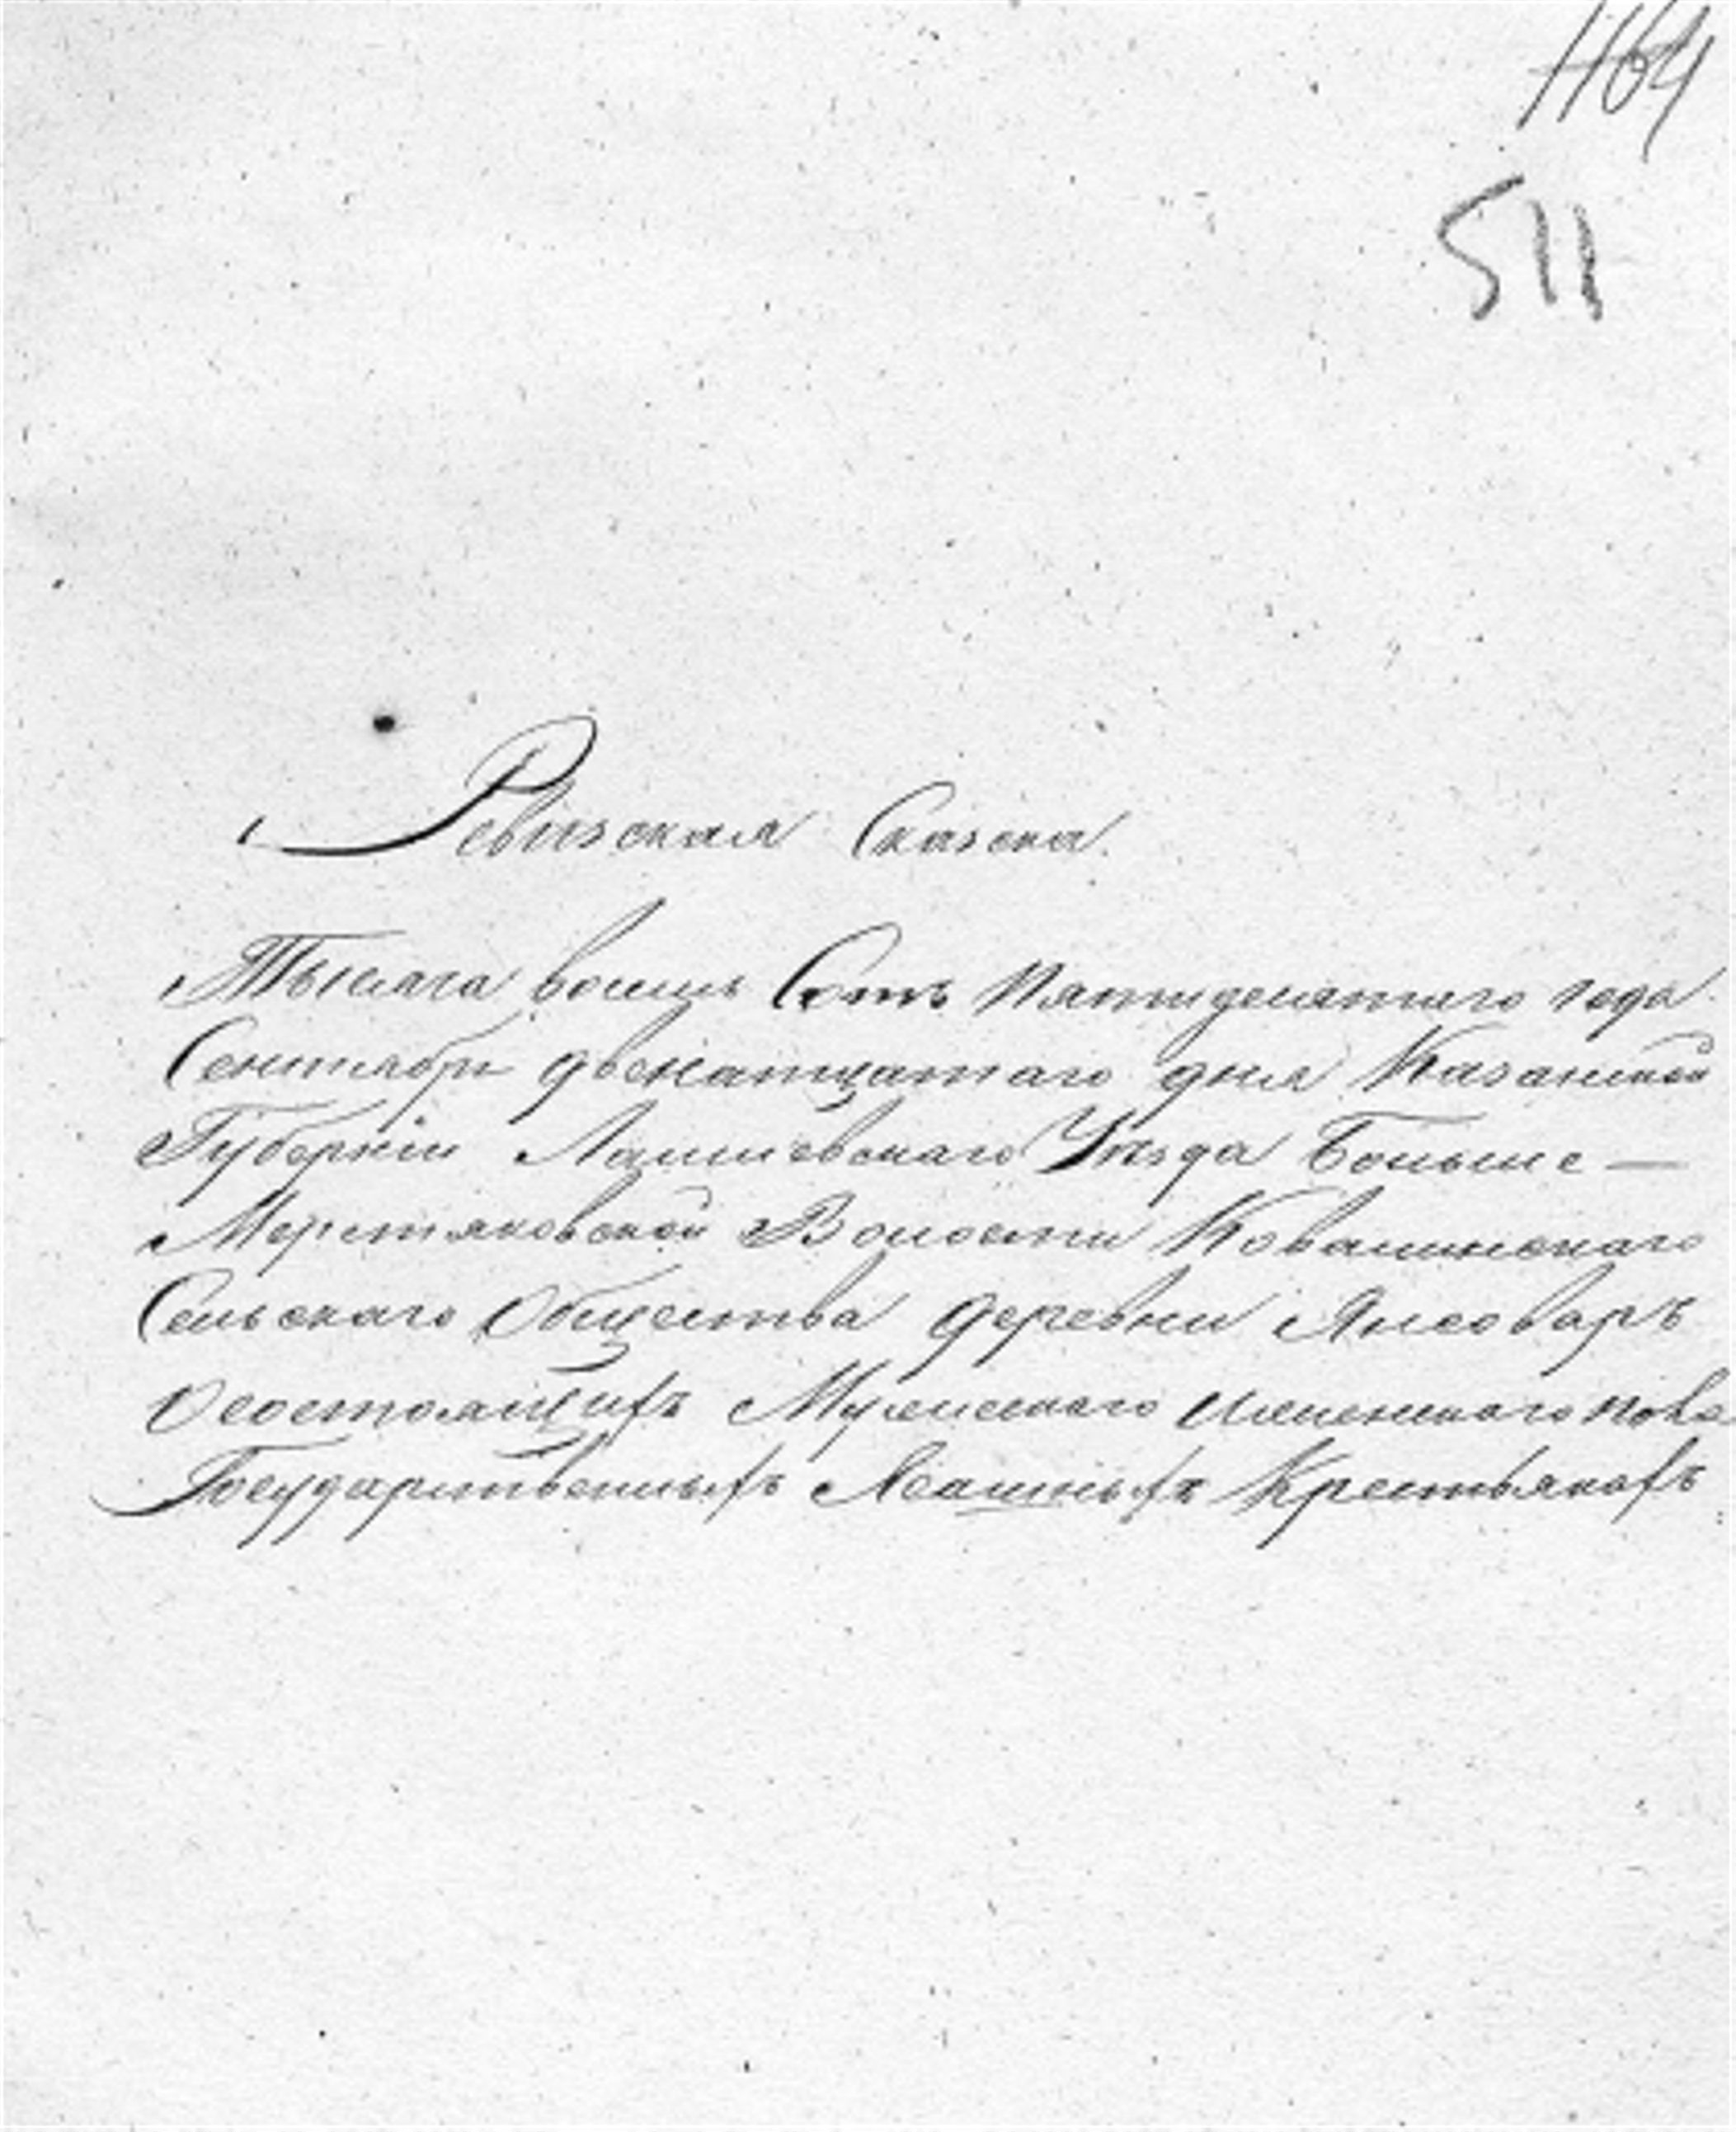 1164
511
Ревизская Сказка.
Тысяча восемь Сотъ Пятидесятаго года
Сентября двенатцатаго дня Казанской
Губерніи Лаишевскаго Уезда Больше-
Меретяковской Волости Ковалинскаго
Сельскаго Общества деревни Янсоваръ
О состоящихъ Мужескаго и женскаго пола
Государственныхъ Ясашныхъ Крестьянахъ